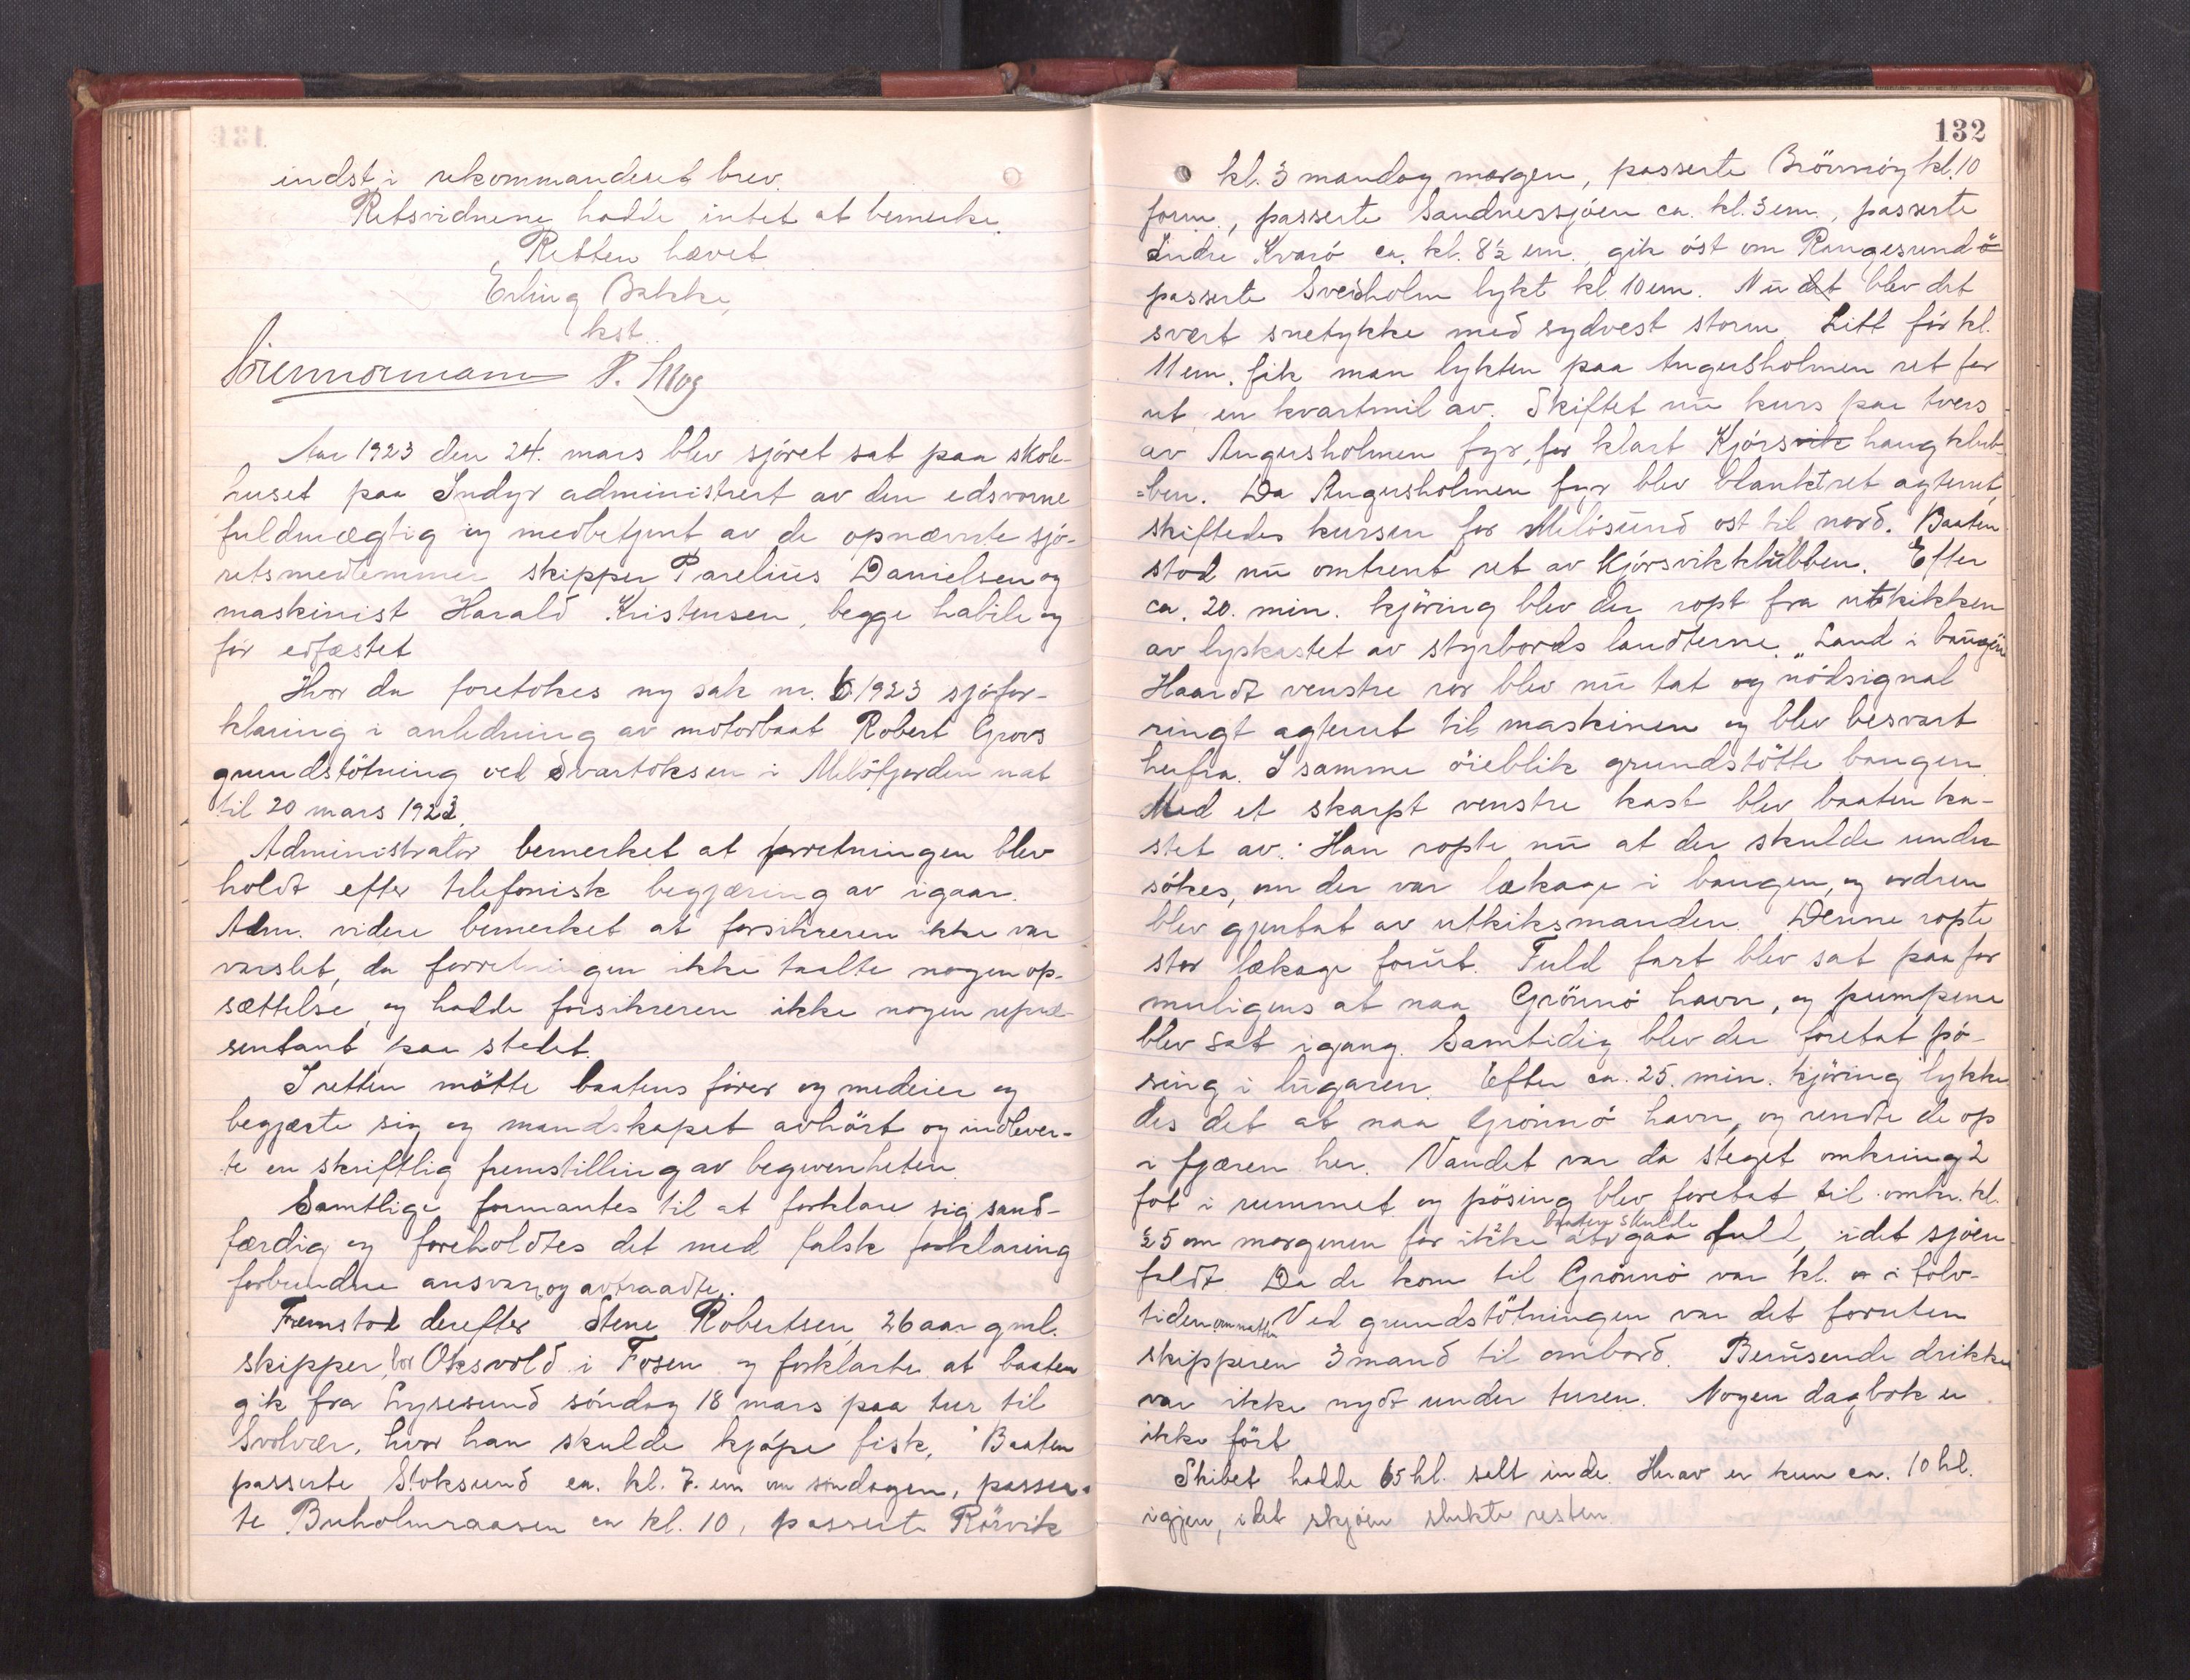 indst. i rekommanderet brev.
Retsvidnene hadde intet at bemerke.
Retten hævet
Erling Bakke,
kst.
P. Skog
Aar 1923 den 24. mars blev sjöret sat paa skole-
huset paa Indyr administrert av den edsvorne
fuldmægtig og medbetjent av de opnævnte sjö-
retsmedlemmer skipper Parelius Danielsen og
maskinist Harald Kristensen, begge habile og
för edfæstet
Hvor da foretokes ny sak nr. 6/1923 sjöfor-
klaring i anledning av motorbaat Robert Grovs
grundstötning ved Svartoksen i Melöfjorden nat
til 20 mars 1923.
Administrator bemerket at forretningen blev
holdt efter telefonisk begjæring av igaar.
Adm. videre bemerket at forsikreren ikke var
varslet, da forretningen ikke taalte nogen op-
sættelse, og hadde forsikreren ikke nogen repræ-
sentant paa stedet.
I retten mötte baatens förer og medeier og
begjærte sig og mandskapet avhört og indlever-
te en skriftlig fremstilling av begivenheten.
Samtlige formantes til at forklare sig sand-
færdig og foreholdtes det med falsk forklaring
forbundne ansvar, og avtraadte.
Fremstod derefter Stene Robertsen, 26 aar gml.
skipper, bor Oksvold i Fosen og forklarte at baaten
gik fra Lysesund söndag 18 mars paa tur til
Svolvær, hvor han skulde kjöpe fisk. Baaten
passerte Stoksund ca. kl. 7. em om söndagen, passer-
te Buholmraasen ca kl. 10, passerte Rörvik
132
kl. 3 mandag morgen, passerte Brönnöy kl. 10
form., passerte Sandnessjöen ca. kl. 3 em., passerte
Indre Kvarö ca. kl. 8½ em., gik öst om Rangesundö
passerte Sveisholm lykt kl. 10 em. Nu det blev det
svært snetykke med sydvest storm. Litt för kl.
11 em. fik man lykten paa Angersholmen ret for
ut en kvartmil av. Skiftet nu kurs paa tvers
av Angersholmen fyr, for klart Kjörsvik haug klub-
=ben. Da Angersholmen fyr blev blankt ret agterut,
skiftedes kursen for Melösund ost til nord. Baaten
stod nu omtrent ret av Kjörsvikklubben. Efter
ca. 20. min. kjöring blev der ropt fra utkikken
av lyskastet av styrbords landterne. "Land i baugen
Haardt venstre ror blev nu tat og nödsignal
ringt agterut til maskinen og blev besvart
herfra. I samme öieblik grundstötte baugen.
Med et skarpt venstre kast blev baaten ka-
stet av. Han ropte nu at der skulde under
sökes, om der var lækage i baugen, og ordren
blev gjentat av utkiksmanden. Denne ropte
stor lækage forut. Fuld fart blev sat paa for
muligens at naa Grönnö havn, og pumpene
blev sat igang. Samtidig blev der foretat pö-
sing i lugaren. Efter ca. 25. min. kjöring lykke
des det at naa Grönnö havn, og rendte de op
i fjæren her. Vandet var da steget omkring 2
fot i rummet og pösing blev foretat til omkr. kl.
½5 om morgenen for ikke at baaten skulde gaa full, idet sjöen
faldt. Da de kom til Grönnö var kl. i tolv-
tiden om natten. Ved grundstötningen var det foruten
skipperen 3 mand til ombord. Berusende drikke
var ikke nydt under turen. Nogen dagbok er
ikke fört
Skibet hadde 65 hl. salt inde. Herav er kun ca. 10 hl.
igjen, idet skjöen slukte resten.